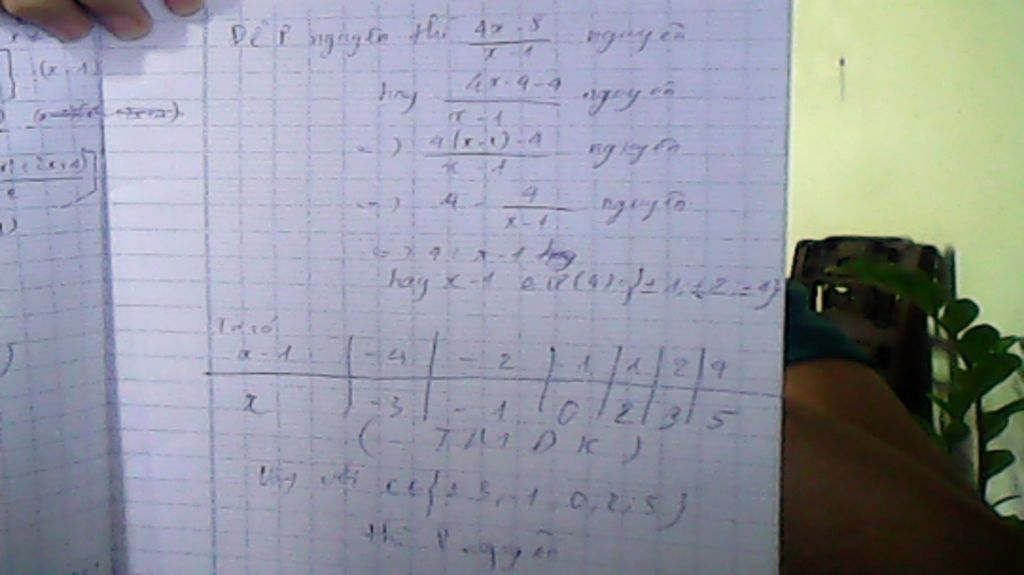 (x-1)
Để P nguyên thì \frac{4x-8}{x-1} nguyên
hay \frac{4x-4-4}{x-1} nguyên
=) \frac{4(x-1)-4}{x-1} nguyên
=) 4 - \frac{4}{x-1} nguyên
=) 4 : x-1
hay x-1 ∈ Ư(4)={±1;±2;±4}
Ta có:
x-1 | -4 | -2 | -1 | 1 | 2 | 4
x | -3 | -1 | 0 | 2 | 3 | 5
( TM ĐK )
Vậy với x∈{±3,-1,0,2,5}
thì P nguyên